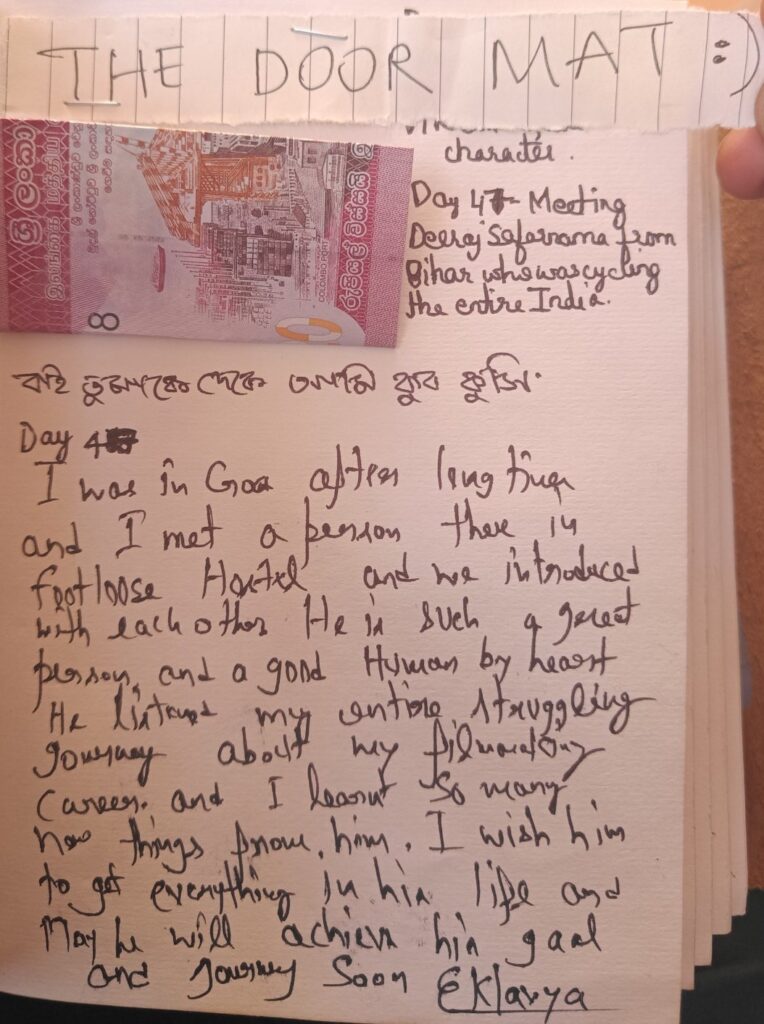 THE DOOR MAT :)
character.
Day 47- Meeting
Deeraj Safarnama from
Bihar who was cycling
the entire India.
ශ්‍රී ලංකා
இலங்கை
COLOMBO PORT
8
Day 4
I was in Goa after long time
and I met a person there in
footloose Hostel and we introduced
with each other He is such a great
person and a good Human by heart
He listened my entire struggling
Journey about my filmmaking
career. and I learnt so many
new things from him. I wish him
to get everything in his life and
May he will achieve his goal
and Journey Soon Eklavya